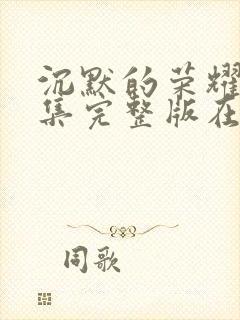 沉默的荣耀
集完整版在
同歌